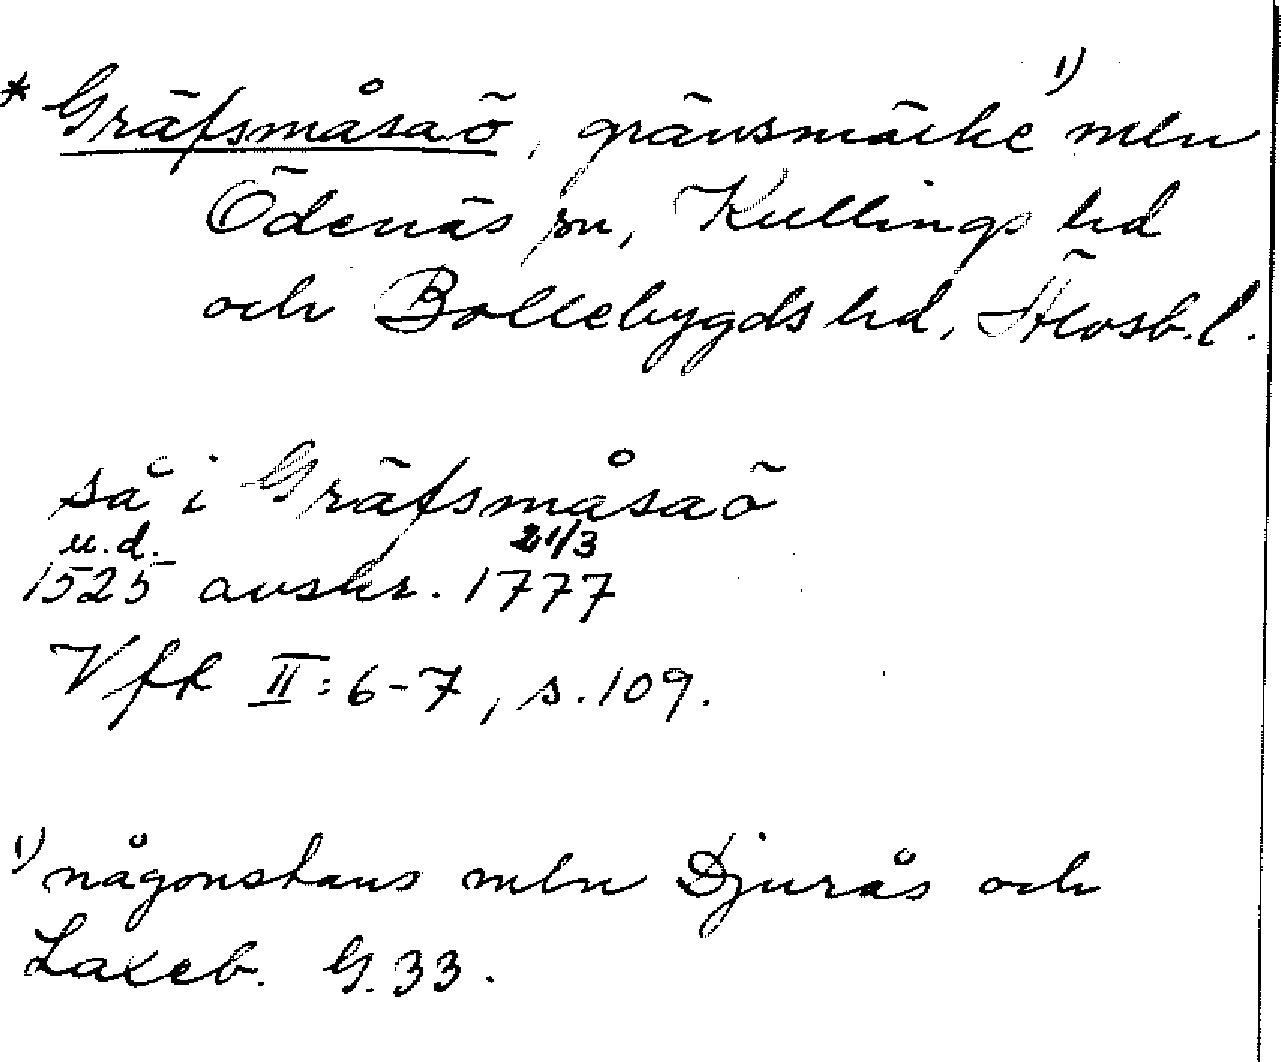 * Gräfsmåsaö, gränsmärke ¹⁾ mln
Ödenäs sn, Kullings hd
och Bollebygds hd, Älvsb. l.
så i Gräfsmåsaö
u.d. 21/3
1525 avskr. 1777
Vff II: 6-7, s. 109.
¹⁾ någonstans mln Djurås och
Laxeb. G. 33.